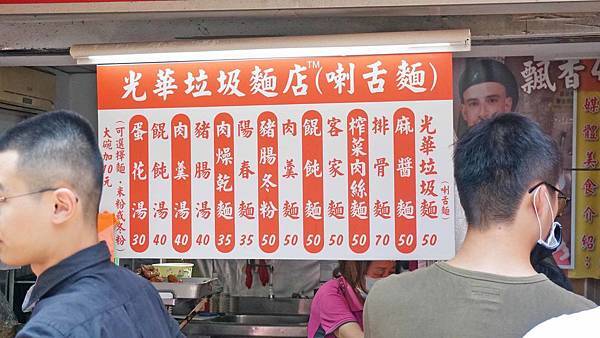 光華垃圾麵店™(喇舌麵)
光華垃圾麵(喇舌麵) 50
麻醬麵 50
排骨麵 70
榨菜肉絲麵 50
客家麵 50
餛飩麵 50
肉羹麵 50
豬腸冬粉 50
陽春麵 35
肉燥乾麵 35
豬腸湯 40
肉羹湯 40
餛飩湯 40
蛋花湯 30
(可選擇麵、米粉或冬粉)
大碗加10元
飄香
媒體美食介紹